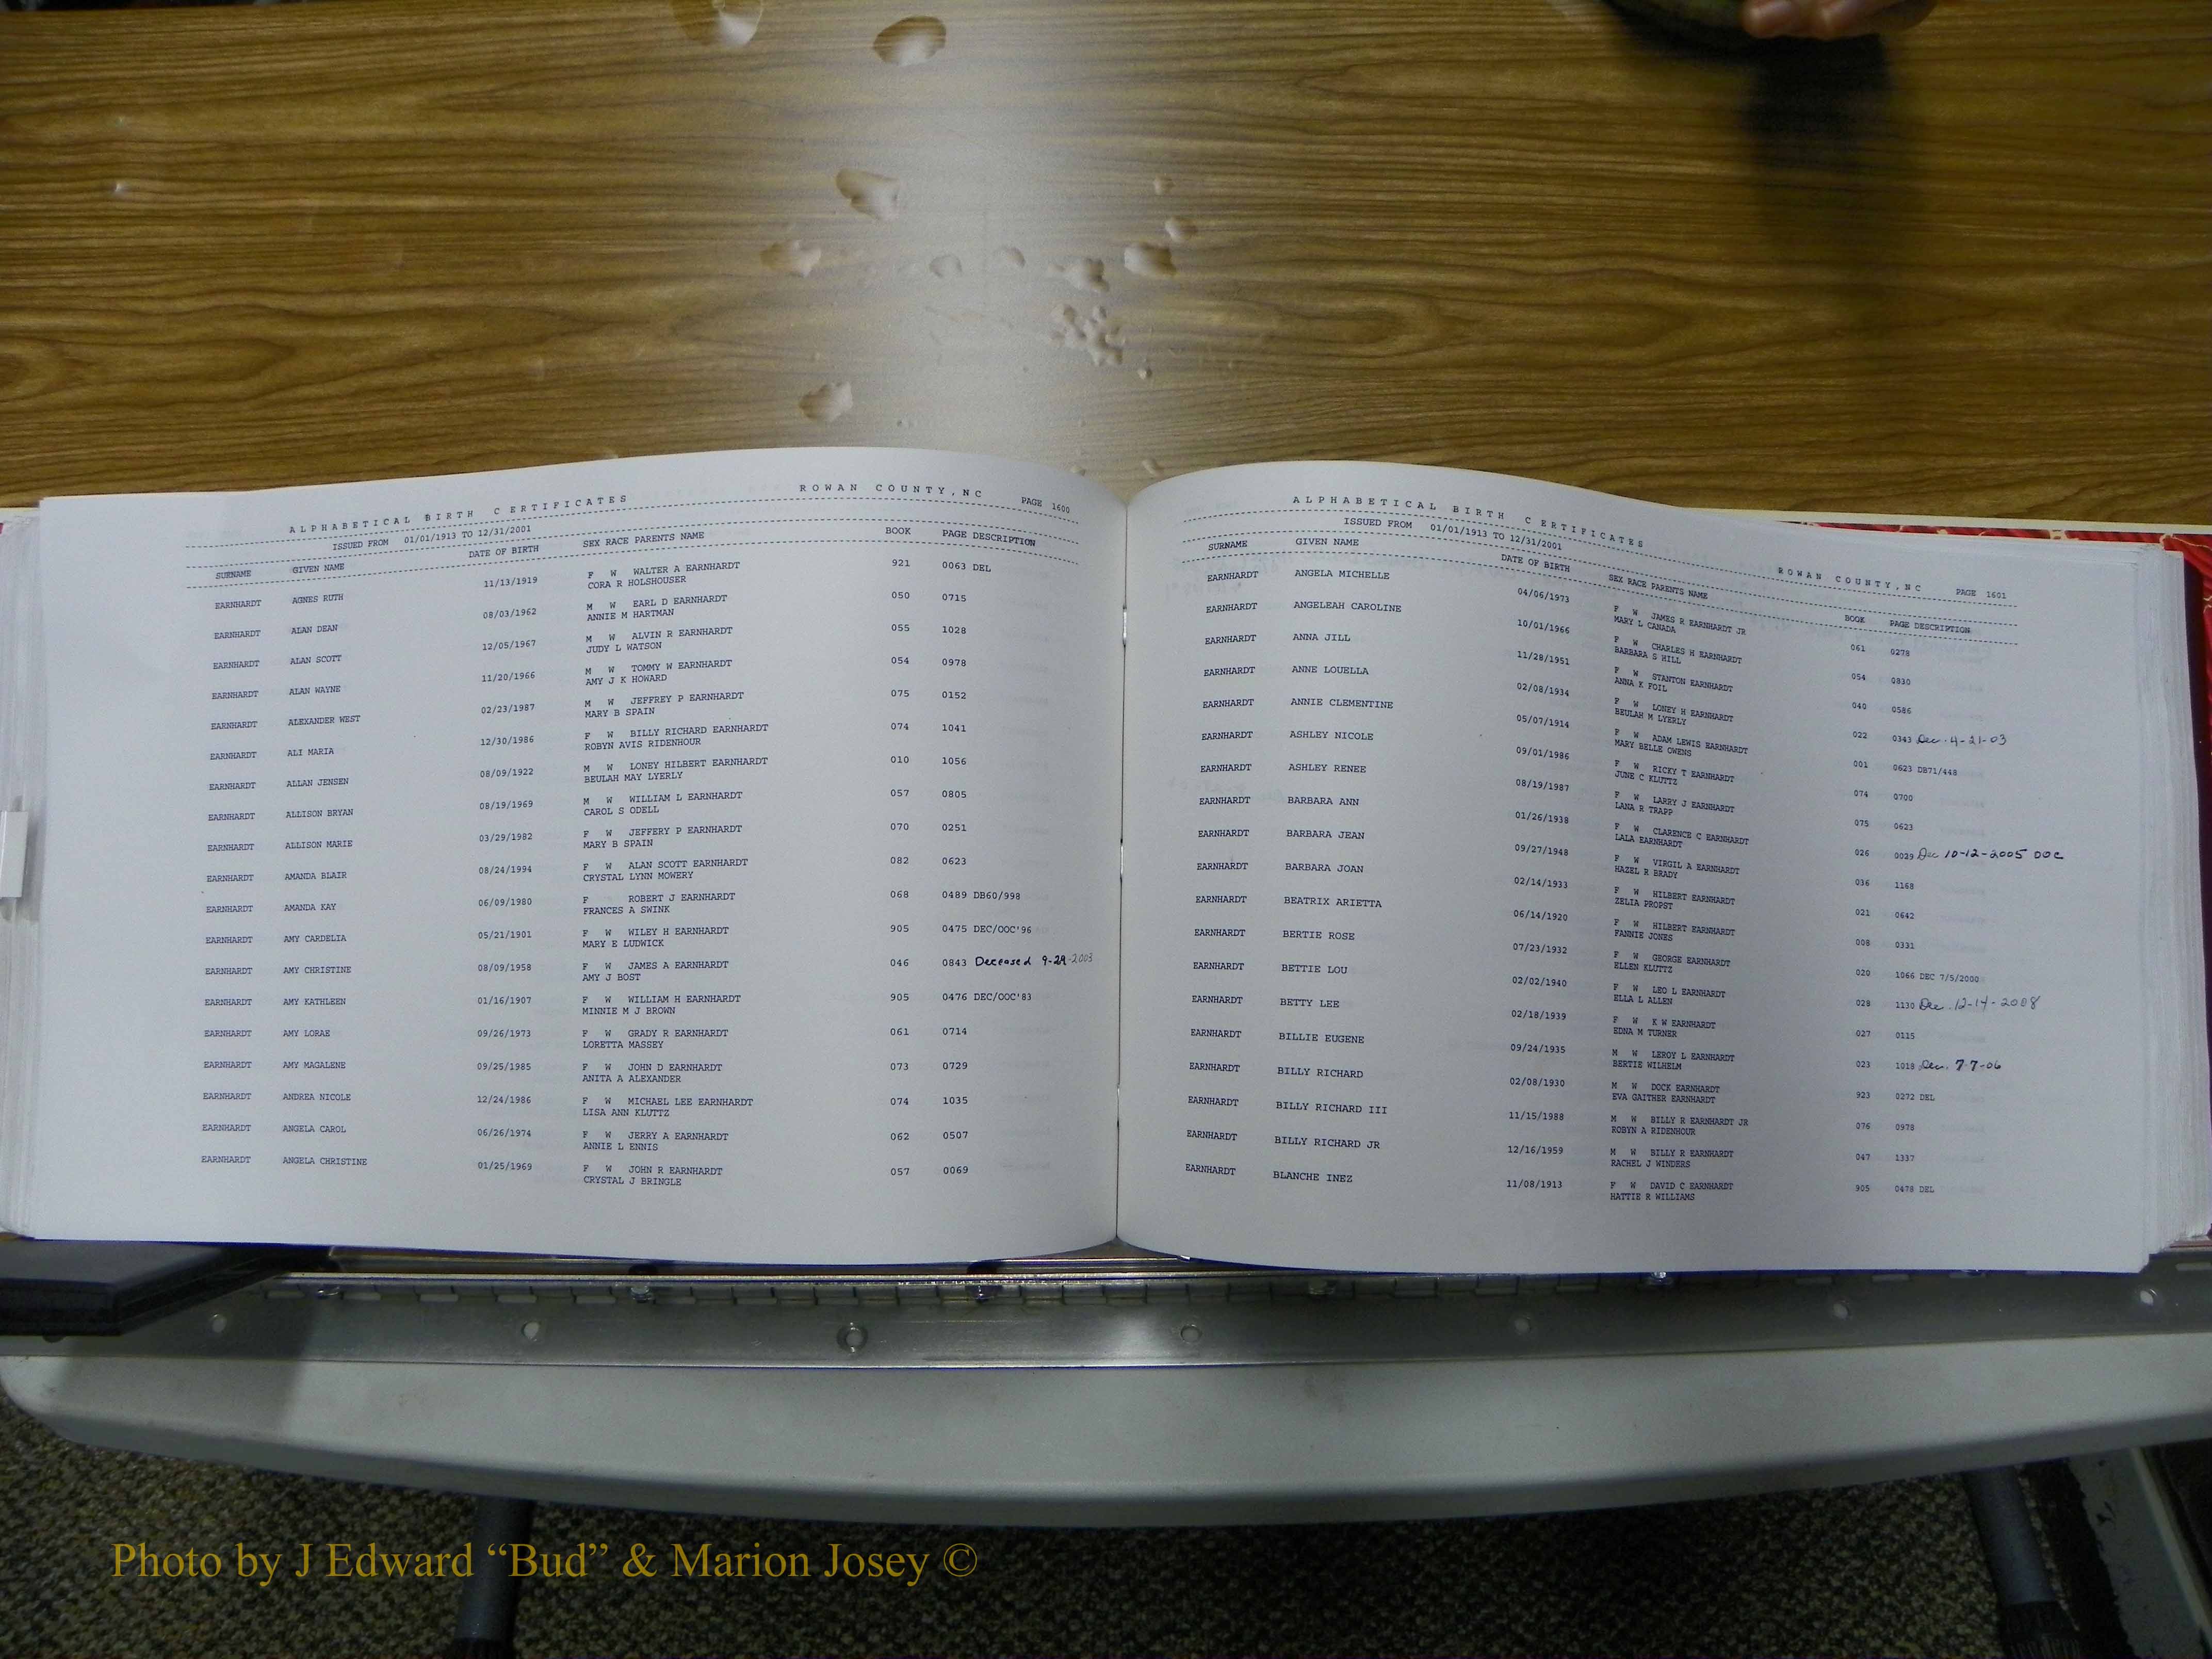 ALPHABETICAL BIRTH CERTIFICATES ROWAN COUNTY, NC PAGE 1600
ISSUED FROM 01/01/1913 TO 12/31/2001
SURNAME GIVEN NAME DATE OF BIRTH SEX RACE PARENTS NAME BOOK PAGE DESCRIPTION
EARNHARDT AGNES RUTH 11/13/1919 F W WALTER A EARNHARDT 921 0063 DEL
CORA R HOLSHOUSER
EARNHARDT ALAN DEAN 08/03/1962 M W EARL D EARNHARDT 050 0715
ANNIE M HARTMAN
EARNHARDT ALAN SCOTT 12/05/1967 M W ALVIN R EARNHARDT 055 1028
JUDY L WATSON
EARNHARDT ALAN WAYNE 11/20/1966 M W TOMMY W EARNHARDT 054 0978
AMY J K HOWARD
EARNHARDT ALEXANDER WEST 02/23/1987 M W JEFFREY P EARNHARDT 075 0152
MARY B SPAIN
EARNHARDT ALI MARIA 12/30/1986 F W BILLY RICHARD EARNHARDT 074 1041
ROBYN AVIS RIDENHOUR
EARNHARDT ALLAN JENSEN 08/09/1922 M W LONEY HILBERT EARNHARDT 010 1056
BEULAH MAY LYERLY
EARNHARDT ALLISON BRYAN 08/19/1969 M W WILLIAM L EARNHARDT 057 0805
CAROL S ODELL
EARNHARDT ALLISON MARIE 03/29/1982 F W JEFFERY P EARNHARDT 070 0251
MARY B SPAIN
EARNHARDT AMANDA BLAIR 08/24/1994 F W ALAN SCOTT EARNHARDT 082 0623
CRYSTAL LYNN MOWERY
EARNHARDT AMANDA KAY 06/09/1980 F ROBERT J EARNHARDT 068 0489 DB60/998
FRANCES A SWINK
EARNHARDT AMY CARDELIA 05/21/1901 F W WILEY H EARNHARDT 905 0475 DEC/OOC'96
MARY E LUDWICK
EARNHARDT AMY CHRISTINE 08/09/1958 F W JAMES A EARNHARDT 046 0843 Deceased 9-29-2003
AMY J BOST
EARNHARDT AMY KATHLEEN 01/16/1907 F W WILLIAM H EARNHARDT 905 0476 DEC/OOC'83
MINNIE M J BROWN
EARNHARDT AMY LORAE 09/26/1973 F W GRADY R EARNHARDT 061 0714
LORETTA MASSEY
EARNHARDT AMY MAGALENE 09/25/1985 F W JOHN D EARNHARDT 073 0729
ANITA A ALEXANDER
EARNHARDT ANDREA NICOLE 12/24/1986 F W MICHAEL LEE EARNHARDT 074 1035
LISA ANN KLUTTZ
EARNHARDT ANGELA CAROL 06/26/1974 F W JERRY A EARNHARDT 062 0507
ANNIE L ENNIS
EARNHARDT ANGELA CHRISTINE 01/25/1969 F W JOHN R EARNHARDT 057 0069
CRYSTAL J BRINGLE
ALPHABETICAL BIRTH CERTIFICATES ROWAN COUNTY, NC PAGE 1601
ISSUED FROM 01/01/1913 TO 12/31/2001
SURNAME GIVEN NAME DATE OF BIRTH SEX RACE PARENTS NAME BOOK PAGE DESCRIPTION
EARNHARDT ANGELA MICHELLE 04/06/1973 F W JAMES R EARNHARDT JR 061 0278
MARY L CANADA
EARNHARDT ANGELEAH CAROLINE 10/01/1966 F W CHARLES H EARNHARDT 054 0830
BARBARA S HILL
EARNHARDT ANNA JILL 11/28/1951 F W STANTON EARNHARDT 040 0586
ANNA K FOIL
EARNHARDT ANNE LOUELLA 02/08/1934 F W LONEY H EARNHARDT 022 0343 Dec. 4-21-03
BEULAH M LYERLY
EARNHARDT ANNIE CLEMENTINE 05/07/1914 F W ADAM LEWIS EARNHARDT 001 0623 DB71/448
MARY BELLE OWENS
EARNHARDT ASHLEY NICOLE 09/01/1986 F W RICKY T EARNHARDT 074 0700
JUNE C KLUTTZ
EARNHARDT ASHLEY RENEE 08/19/1987 F W LARRY J EARNHARDT 075 0623
LANA R TRAPP
EARNHARDT BARBARA ANN 01/26/1938 F W CLARENCE C EARNHARDT 026 0029 Dec 10-12-2005 OOC
LALA EARNHARDT
EARNHARDT BARBARA JEAN 09/27/1948 F W VIRGIL A EARNHARDT 036 1168
HAZEL R BRADY
EARNHARDT BARBARA JOAN 02/14/1933 F W HILBERT EARNHARDT 021 0642
ZELIA PROPST
EARNHARDT BEATRIX ARIETTA 06/14/1920 F W HILBERT EARNHARDT 008 0331
FANNIE JONES
EARNHARDT BERTIE ROSE 07/23/1932 F W GEORGE EARNHARDT 020 1066 DEC 7/5/2000
ELLEN KLUTTZ
EARNHARDT BETTIE LOU 02/02/1940 F W LEO L EARNHARDT 028 1130 Dec. 12-14-2008
ELLA L ALLEN
EARNHARDT BETTY LEE 02/18/1939 F W K W EARNHARDT 027 0115
EDNA M TURNER
EARNHARDT BILLIE EUGENE 09/24/1935 M W LEROY L EARNHARDT 023 1018 Dec. 7-7-06
BERTIE WILHELM
EARNHARDT BILLY RICHARD 02/08/1930 M W DOCK EARNHARDT 923 0272 DEL
EVA GAITHER EARNHARDT
EARNHARDT BILLY RICHARD III 11/15/1988 M W BILLY R EARNHARDT JR 076 0978
ROBYN A RIDENHOUR
EARNHARDT BILLY RICHARD JR 12/16/1959 M W BILLY R EARNHARDT 047 1337
RACHEL J WINDERS
EARNHARDT BLANCHE INEZ 11/08/1913 F W DAVID C EARNHARDT 905 0478 DEL
HATTIE R WILLIAMS
Photo by J Edward “Bud” & Marion Josey ©